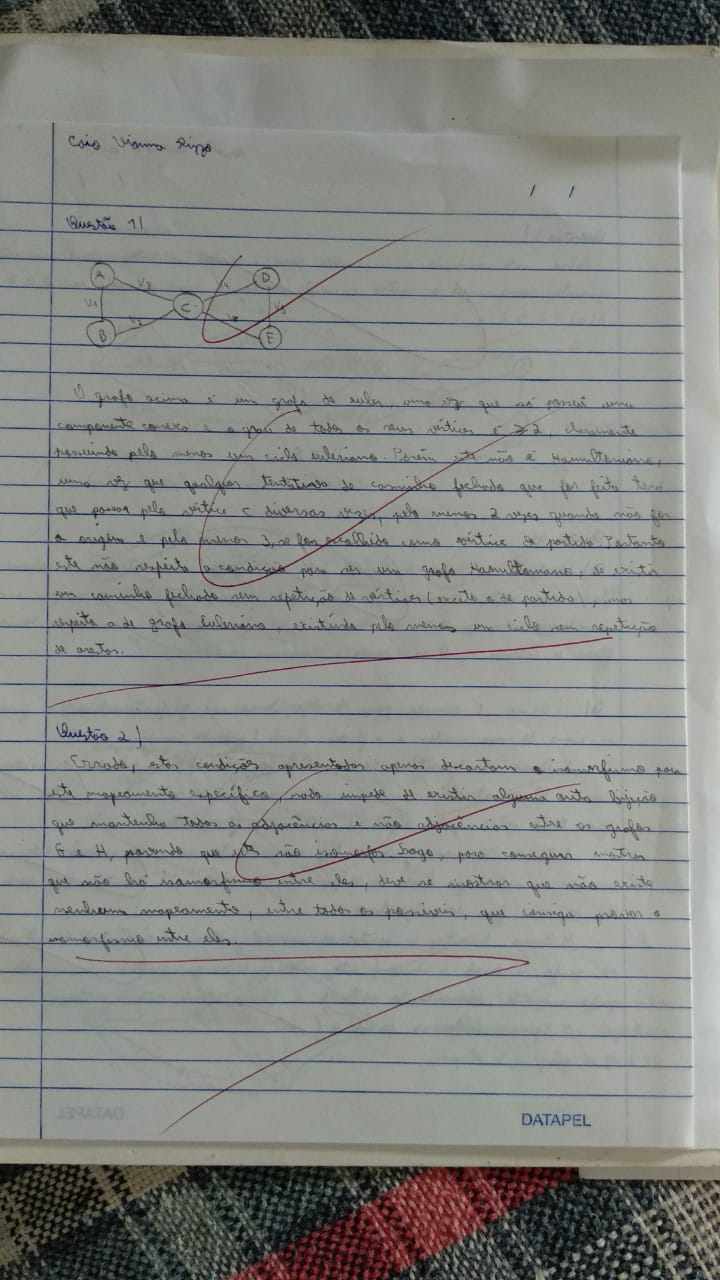 Caio Vianna Rizzo
/ /
Questão 1)
A V3 V4 D
V1 C V5
B V2 V6 E
O grafo acima é um grafo de euler, uma vez que só possui uma
componente conexa e o grau de todos os seus vértices é ≥ 2, claramente
possuindo pelo menos um ciclo euleriano. Porém ele não é Hamiltoniano,
uma vez que qualquer tentativa de caminho fechado que for feita terá
que passar pelo vértice C diversas vezes, pelo menos 2 vezes quando não for
a origem e pelo menos 3, se for escolhido como vértice de partida. Portanto
este não respeita a condição para ser um grafo Hamiltoniano, de existir
um caminho fechado sem repetição de vértices (exceto o de partida), mas
respeita a de grafo Euleriano, existindo pelo menos um ciclo sem repetição
de arestas.
Questão 2)
Errado, estas condições apresentadas apenas descartam o isomorfismo para
este mapeamento específico, nada impede de existir alguma outra bijeção
que mantenha todas as adjacências e não adjacências entre os grafos
G e H, que não isomorfos. Logo, para conseguir mostrar
que não há isomorfismo entre eles, deve se mostrar que não existe
nenhum mapeamento, entre todos os possíveis, que consiga provar o
isomorfismo entre eles.
DATAPEL
DATAPEL